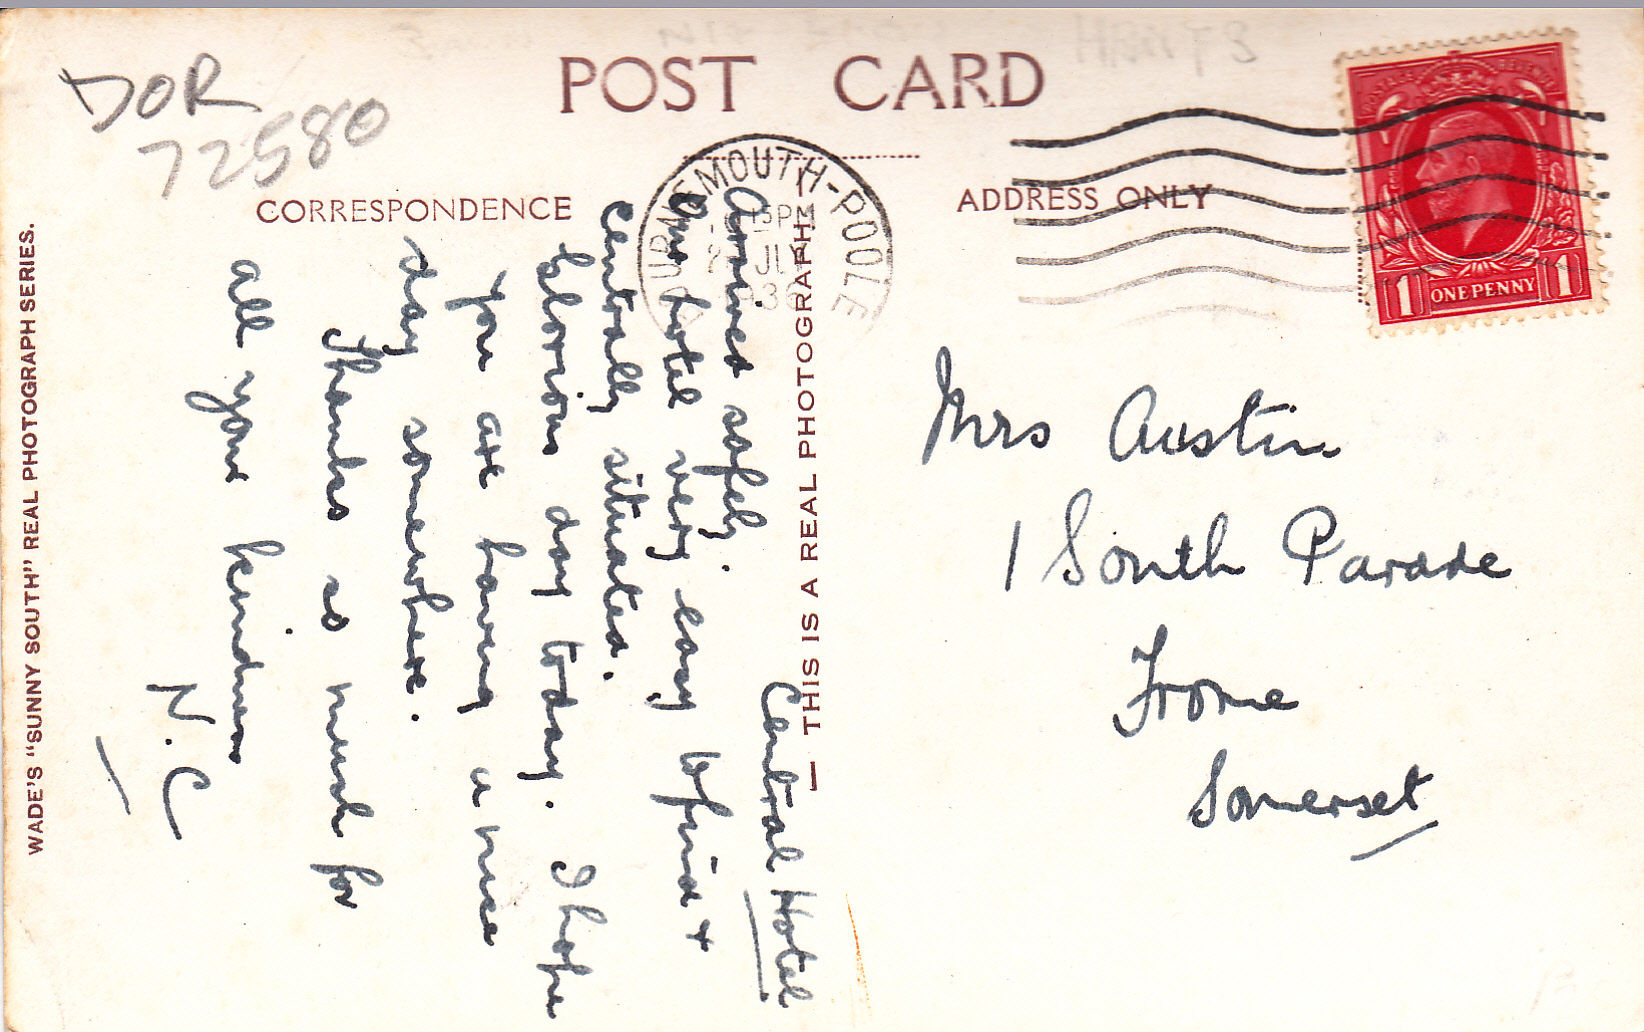 DOR
72580
POST CARD
CORRESPONDENCE
ADDRESS ONLY
BOURNEMOUTH-POOLE
15 PM
JL
193
ONE PENNY
1 1
WADE'S "SUNNY SOUTH" REAL PHOTOGRAPH SERIES.
THIS IS A REAL PHOTOGRAPH
Central Hotel
Arrived safely.
Our hotel very easy to find +
centrally situated.
Glorious day today. I hope
you are having a nice
day somewhere.
Thanks so much for
all your kindness
N.C
Mrs Austin
1 South Parade
Frome
Somerset